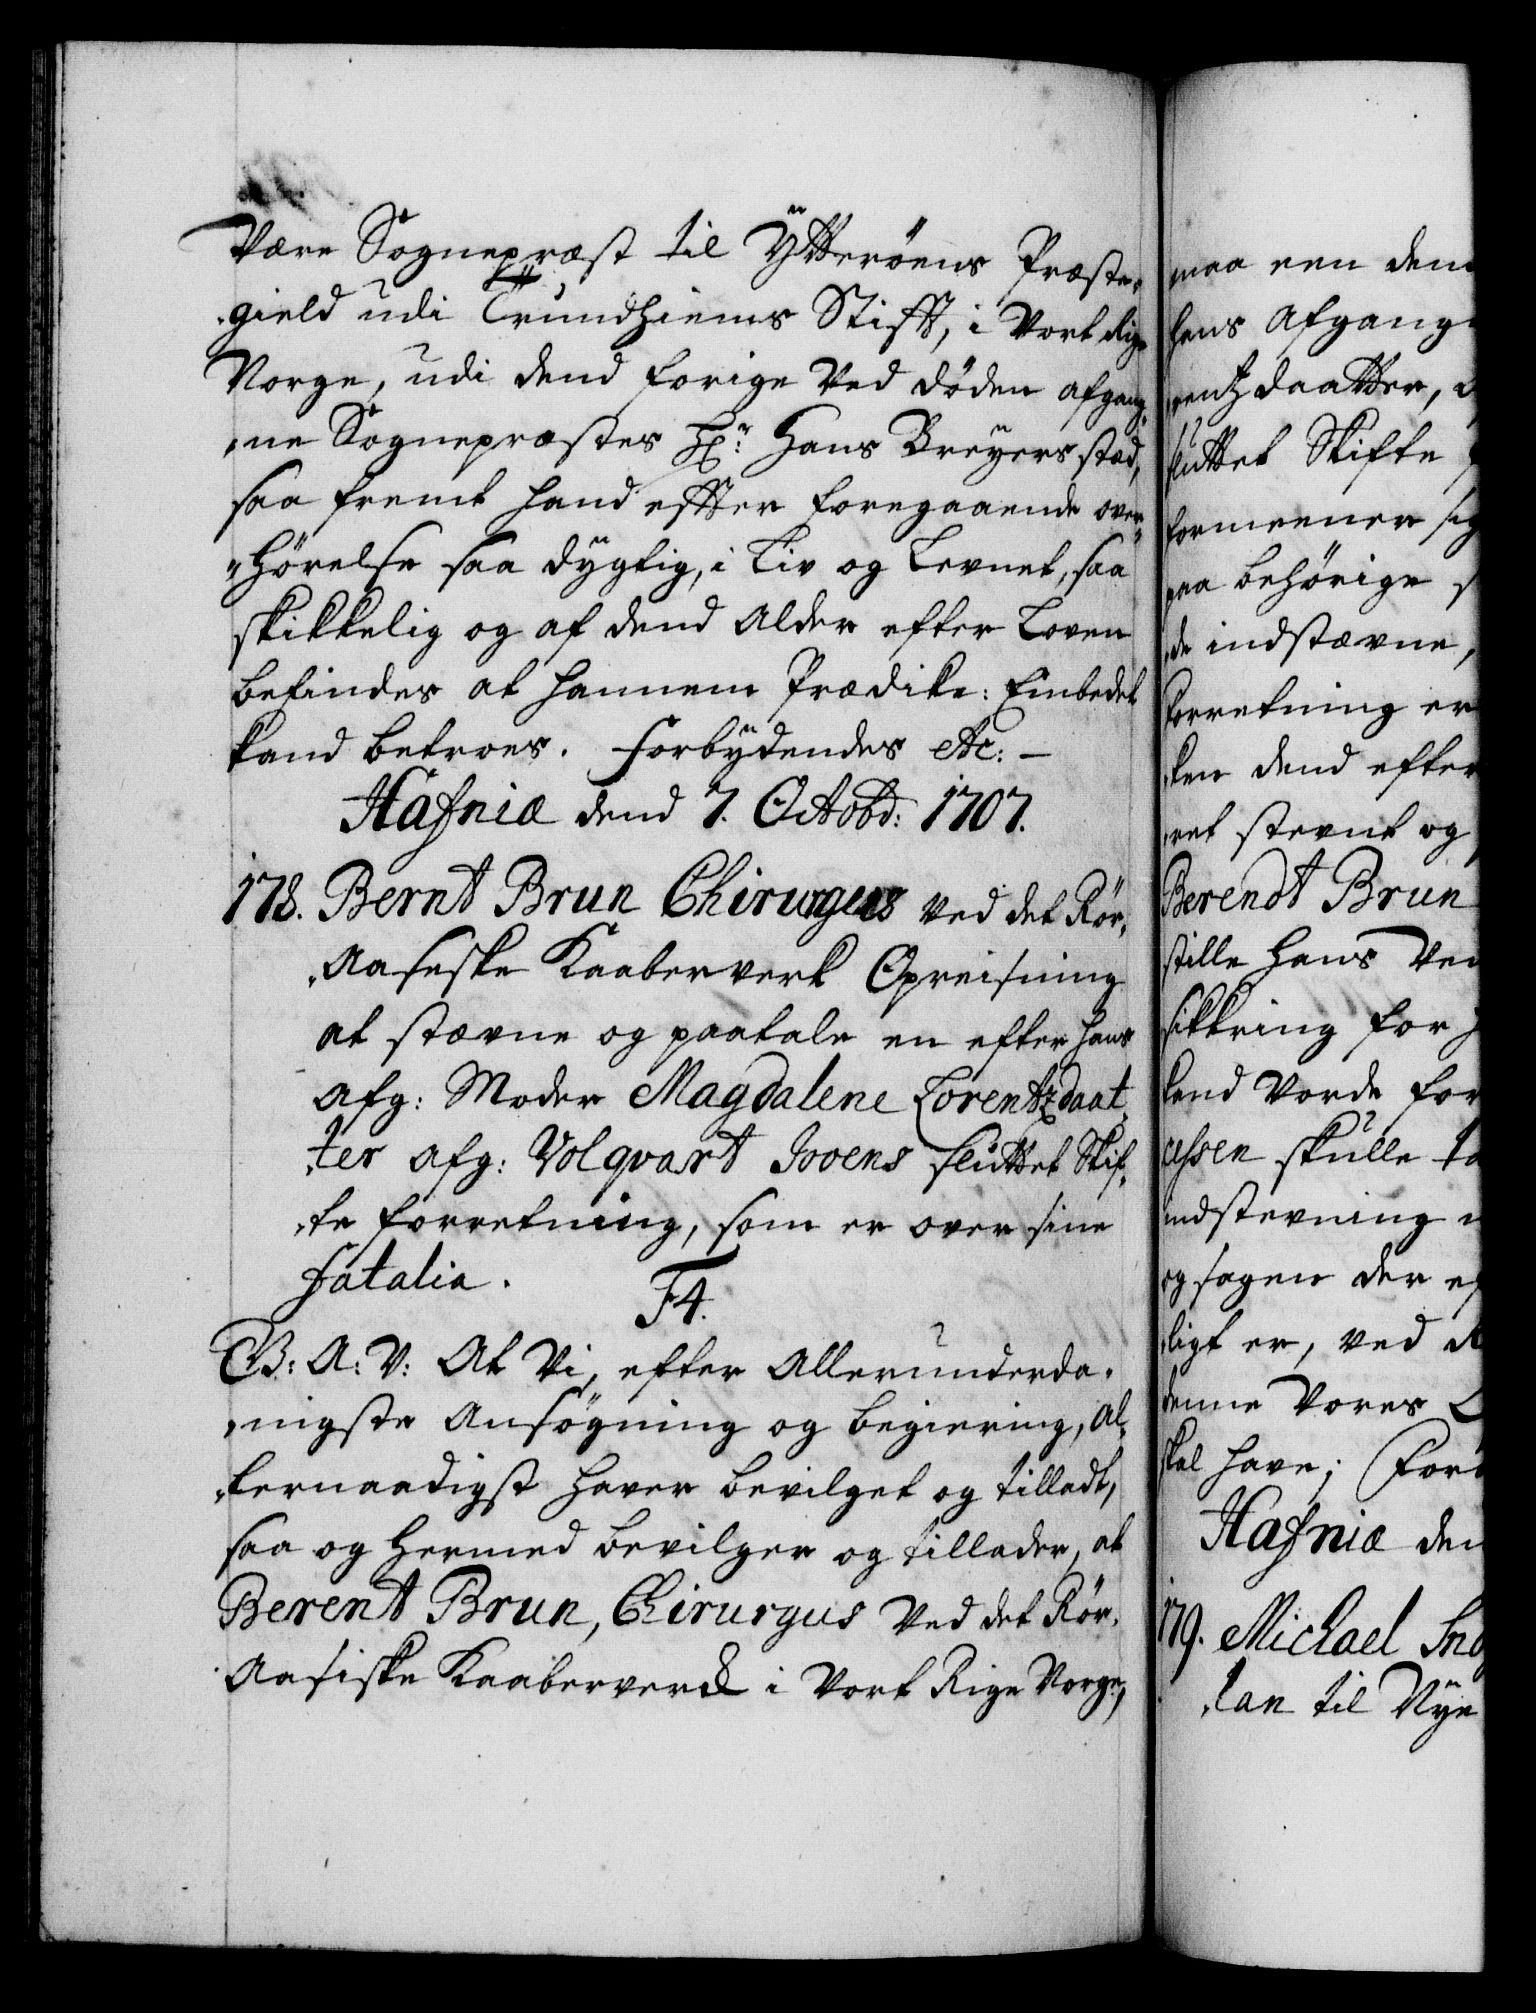 være Sognepræst til Ÿtterøens Præste¬
gield udi Trundhiems Stifft, i Vort Rige
Norge, udi dend forige Ved Døden afgang¬
ne Sognepræstes Hr: Hans Breÿers stæd,
saa fremt hand effter foregaaende over¬
hørelse saa dÿgtig, i Liv og Levnet, saa
skikkelig og af dend Alder efter Loven
befindes at hannem Prædike: Embedet
kand betroes. Forbÿdendes etc: —
Hafniæ dend 7. Octobr: 1707.
178. Bernt Brun Chirurgus ved det Rør¬
Aaseske Kaaberverk Opreisning
at stævne og paatale en efter hans
afg: Moder Magdalene Lorentzdaat¬
ter afg: Volqvart Jovens sluttet Skif¬
te forretning, som er over sine
fatalia.
F4.
G: A: V: At Vi, efter Allerunderda¬
nigste Ansøgning og begiering, Al¬
lernaadigst haver bevilget og tilladt,
saa og hermed bevilger og tillader, at
Berent Brun, Chirurgus Ved det Rør¬
Aasiske Kaaberverck i Vort Rige Norge,
maa een dem
hans Afgang
rentzdaatter,
sluttet Skifte
formeener sig
paa behørige
de indstævne,
forretning er
ken dend efter
ret stevnt og
Berendt Brun
stille hans Ved
sikkring for
kand Vorde for
cessen skulle
indstevning
og sagen der
ligt er, ved
denne Vores
skal have; For
Hafniæ den
179. Michael
lan til Nÿe